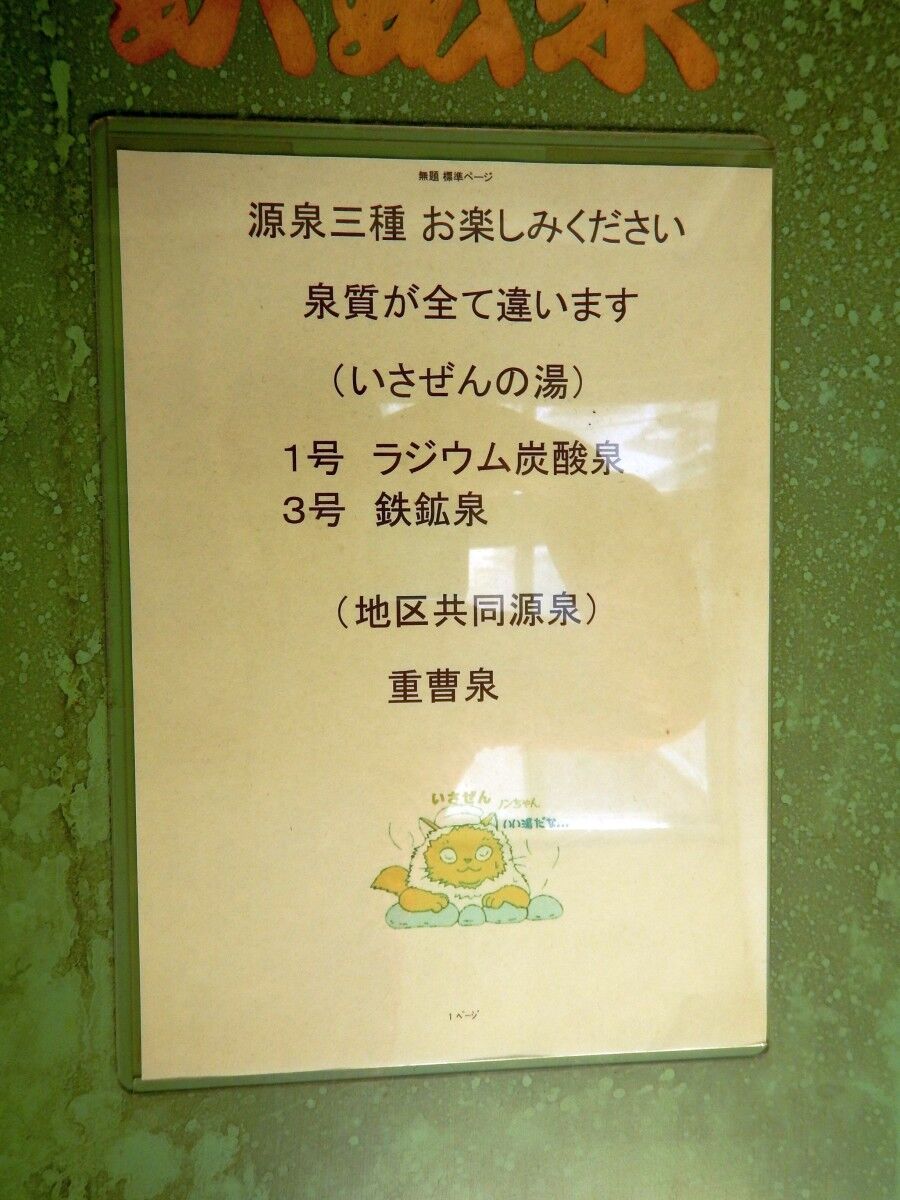 鉄鉱泉
無題 標準ページ
源泉三種 お楽しみください
泉質が全て違います
（いさぜんの湯）
１号 ラジウム炭酸泉
３号 鉄鉱泉
（地区共同源泉）
重曹泉
いさぜん
ノンちゃん
いい湯だな...
1 ﾍﾟｰｼﾞ